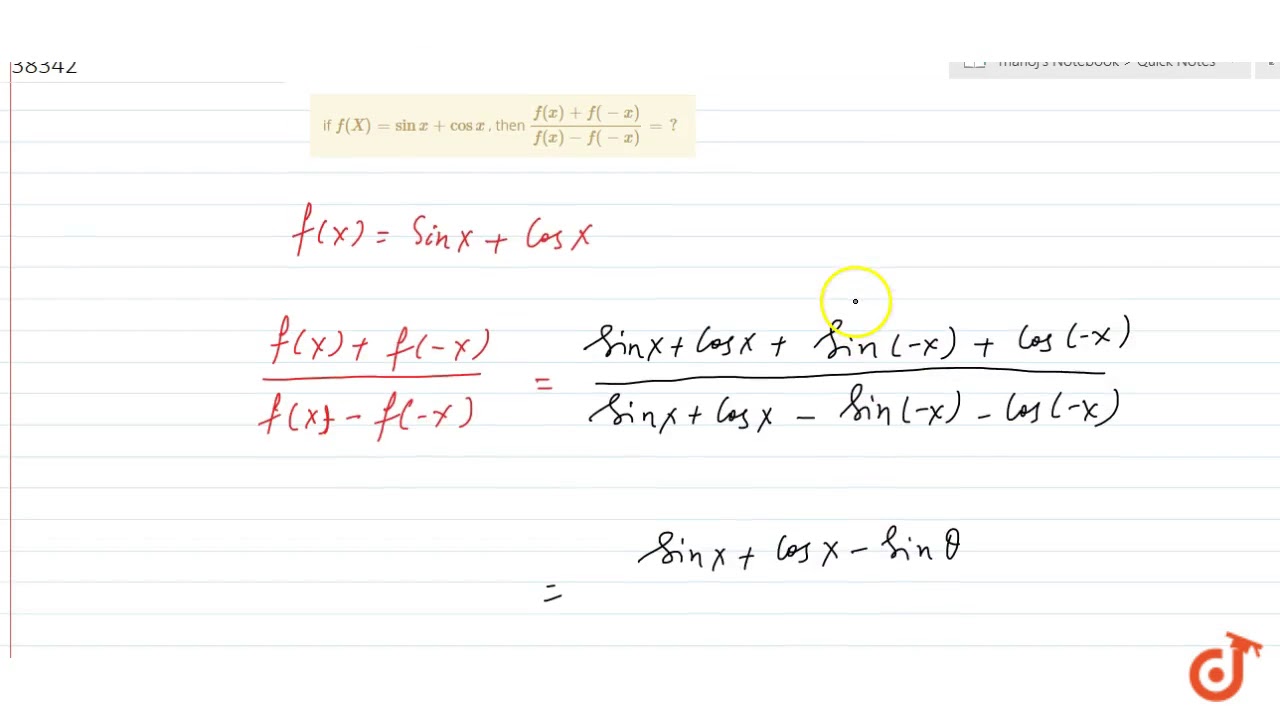 38342
Manoj's Notebook > Quick Notes
if f(X) = sin x + cos x , then \frac{f(x) + f( - x)}{f(x) - f( - x)} = ?
f(x) = Sin x + Cos x
\frac{f(x) + f(-x)}{f(x) - f(-x)} = \frac{Sin x + Cos x + Sin (-x) + Cos (-x)}{Sin x + Cos x - Sin (-x) - Cos (-x)}
Sin x + Cos x - Sin θ
=